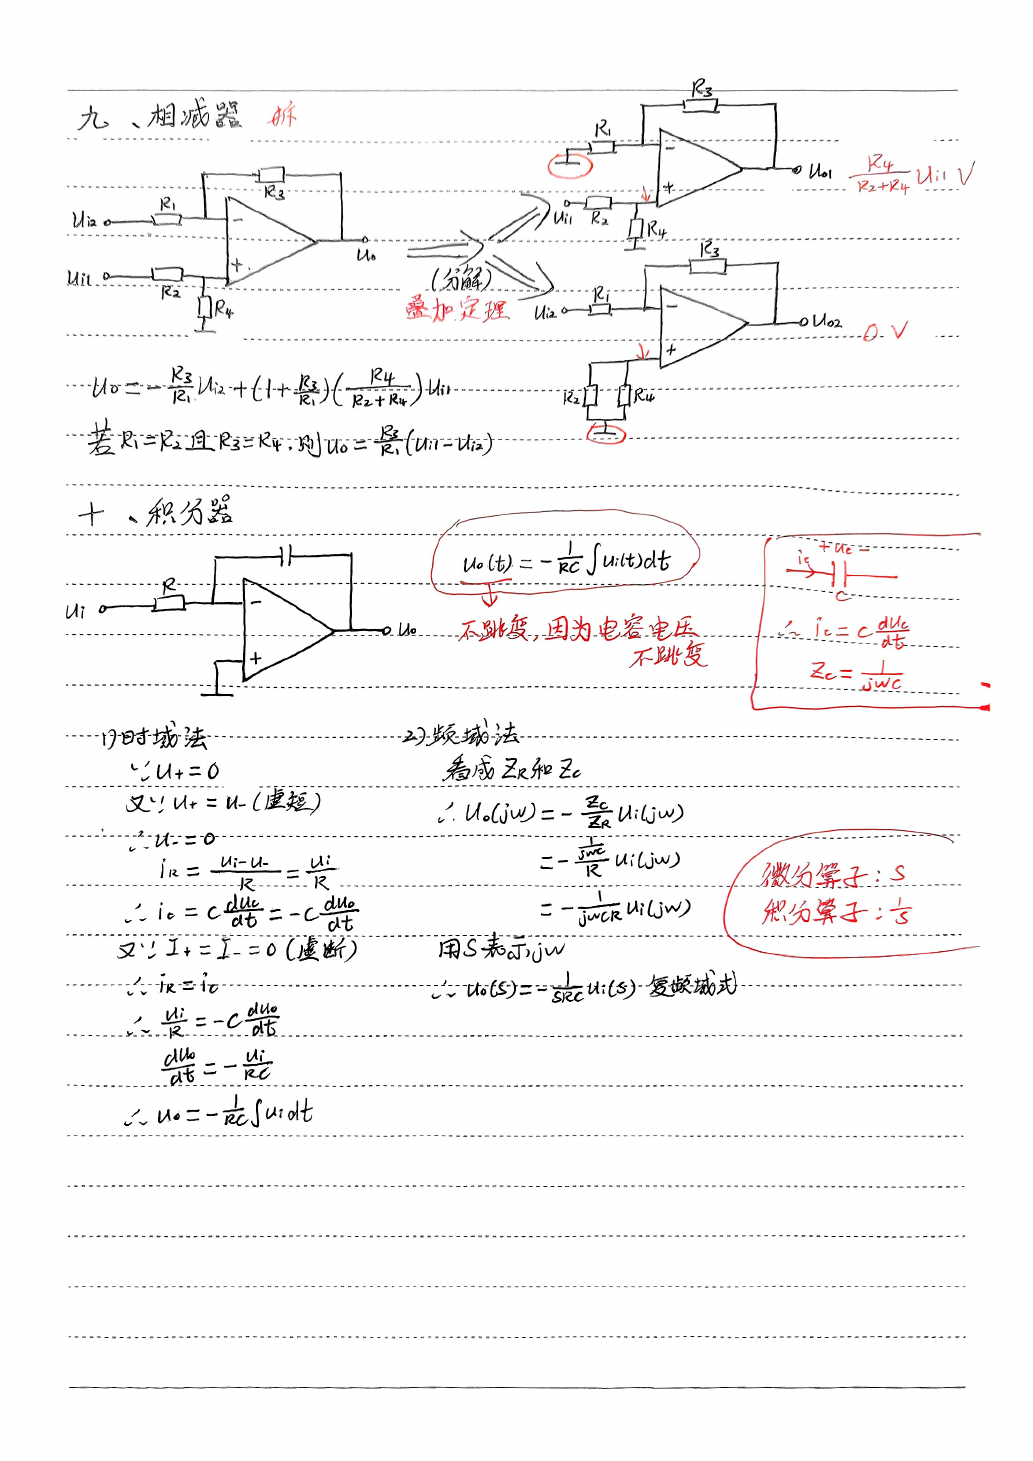 九、相减器 拆
R3
R1
Ui2
Ui1
R2
R4
R3
Uo
-
+
(分解)
叠加定理
R3
R1
-
+
Ui1
R2
R4
Uo1
R4/(R2+R4) Ui1 V
R3
Ui2
R1
-
+
R2
R4
Uo2
0 V
Uo = -R3/R1 Ui2 + (1+R3/R1)(R4/(R2+R4)) Ui1
若R1=R2且R3=R4,则Uo = R3/R1 (Ui1-Ui2)
十、积分器
Ui
R
-
+
Uo
Uo(t) = -1/RC ∫Ui(t)dt
不跳变,因为电容电压
不跳变
ic
+Uc-
C
∴ ic = C dUc/dt
Zc = 1/jwC
1)时域法
∵U+=0
又∵U+=U-(虚短)
∴U-=0
iR = (Ui-U-)/R = Ui/R
∴ ic = C dUc/dt = -C dUo/dt
又∵I+=I-=0(虚断)
∴ iR=ic
∴ Ui/R = -C dUo/dt
dUo/dt = -Ui/RC
∴ Uo = -1/RC ∫Ui dt
2)频域法
看成ZR和Zc
∴Uo(jw) = -Zc/ZR Ui(jw)
= -(1/jwC)/R Ui(jw)
= -1/jwCR Ui(jw)
用S表示jw
∴ Uo(S) = -1/SRC Ui(S) 复频域式
微分算子:S
积分算子:1/S